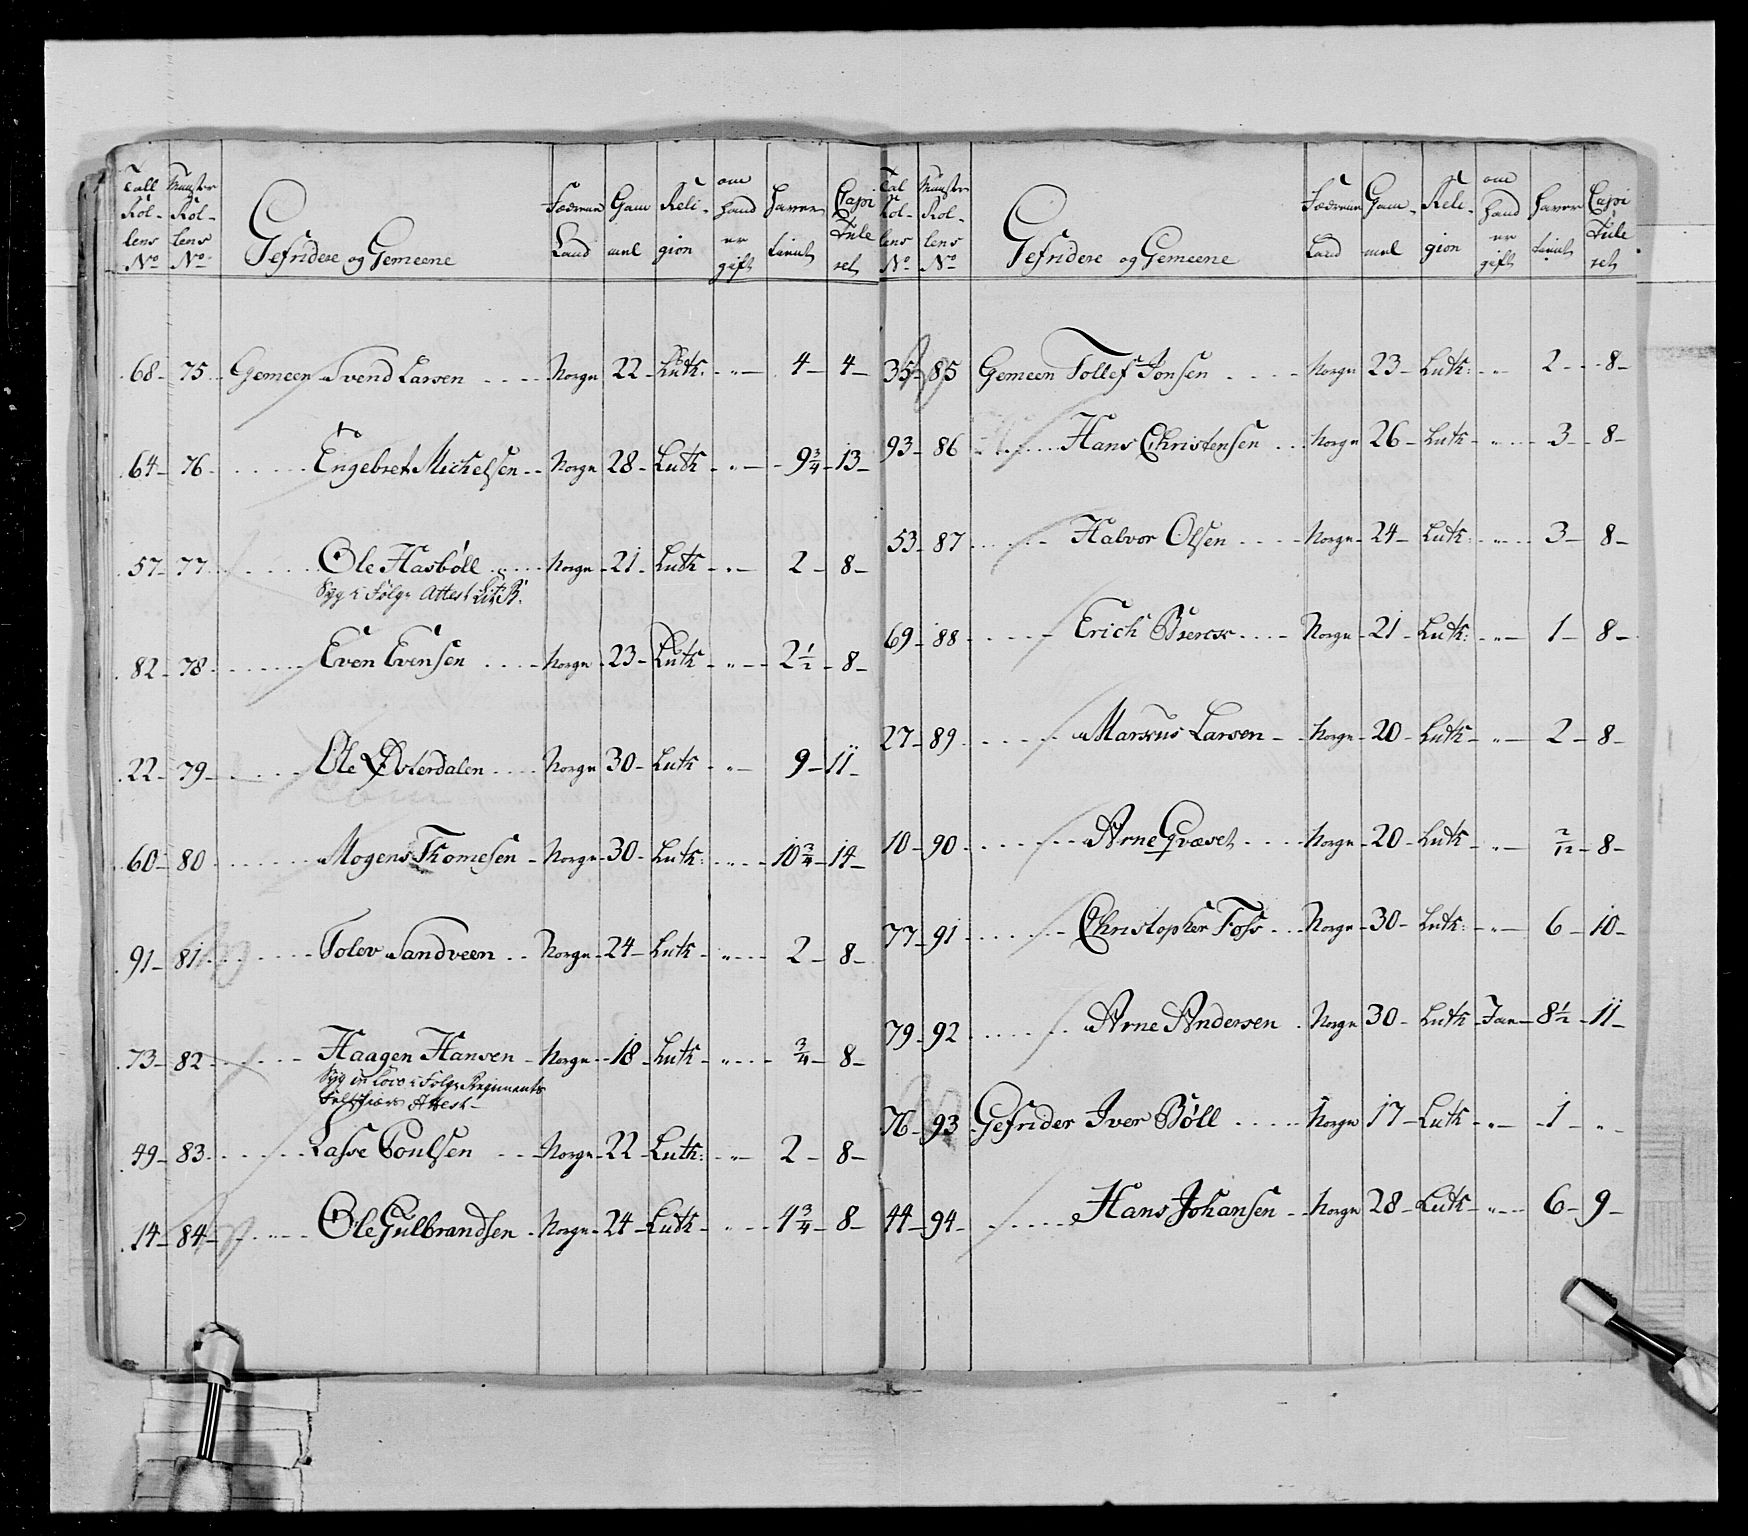 Tall Rol- lens No | Munster Rol- lens No | Gefridere og Gemeene | Fædrene Land | Gam- mel | Reli- gion | om hand er gift | haver tient | Capi tule ret
68 - 75 Gemeen Svend Larsen Norge 22 - Luth: - " - 4 - 4 -
64 - 76 Engebret Michelsen Norge 28 - Luth - " - 9 3/4 - 13 -
57 - 77 Ole Hasbøll Norge 21 - Luth - " - 2 - 8 -
Syg i Følge Attest Lit: B.
82 - 78 Even Evensen Norge 23 - Luth - " - 2 1/2 - 8 -
22 - 79 Ole Østerdalen Norge 30 - Luth - " - 9 - 11 -
60 - 80 Mogens Thomesen Norge 30 - Luth: - " - 10 3/4 - 14 -
91 - 81 Tolov Sandveen Norge 24 - Luth - " - 2 - 8 -
73 - 82 Haagen Hansen Norge 18 - Luth - " - 3/4 - 8 -
Syg in Loco i Følge Regiments
Feltskiærs Attest -
49 - 83 Lasse Poulsen Norge 22 - Luth: - " - 2 - 8 -
14 - 84 Ole Gulbrandsen Norge 24 - Luth - " - 4 3/4 - 8 -
Tal Rol- lens No | Munster Rol- lens No | Gefridere og Gemeene | Fædrene Land | Gam- mel | Reli- gion | om hand er gift | haver tient | Capi tule ret
35 - 85 Gemeen Tollef Jonsen Norge 23 - Luth: - " - 2 - 8 -
93 - 86 Hans Christensen Norge 26 - Luth - " - 3 - 8 -
53 - 87 Halvor Olsen Norge 24 - Luth: - " - 3 - 8 -
69 - 88 Erich Norge 21 - Luth: - " - 1 - 8 -
27 - 89 Marcus Larsen Norge 20 - Luth - " - 2 - 8 -
10 - 90 Arne Qvævet Norge 20 - Luth - " - 2/12 - 8 -
77 - 91 Christopher Foss Norge 30 - Luth: - " - 6 - 10 -
79 - 92 Arne Andersen Norge 30 - Luth - Jae - 8 1/2 - 11 -
76 - 93 Gefrider Iver Bøll Norge 17 - Luth - " - 1 - "
44 - 94 Hans Johansen Norge 28 - Luth - " - 6 - 9 -